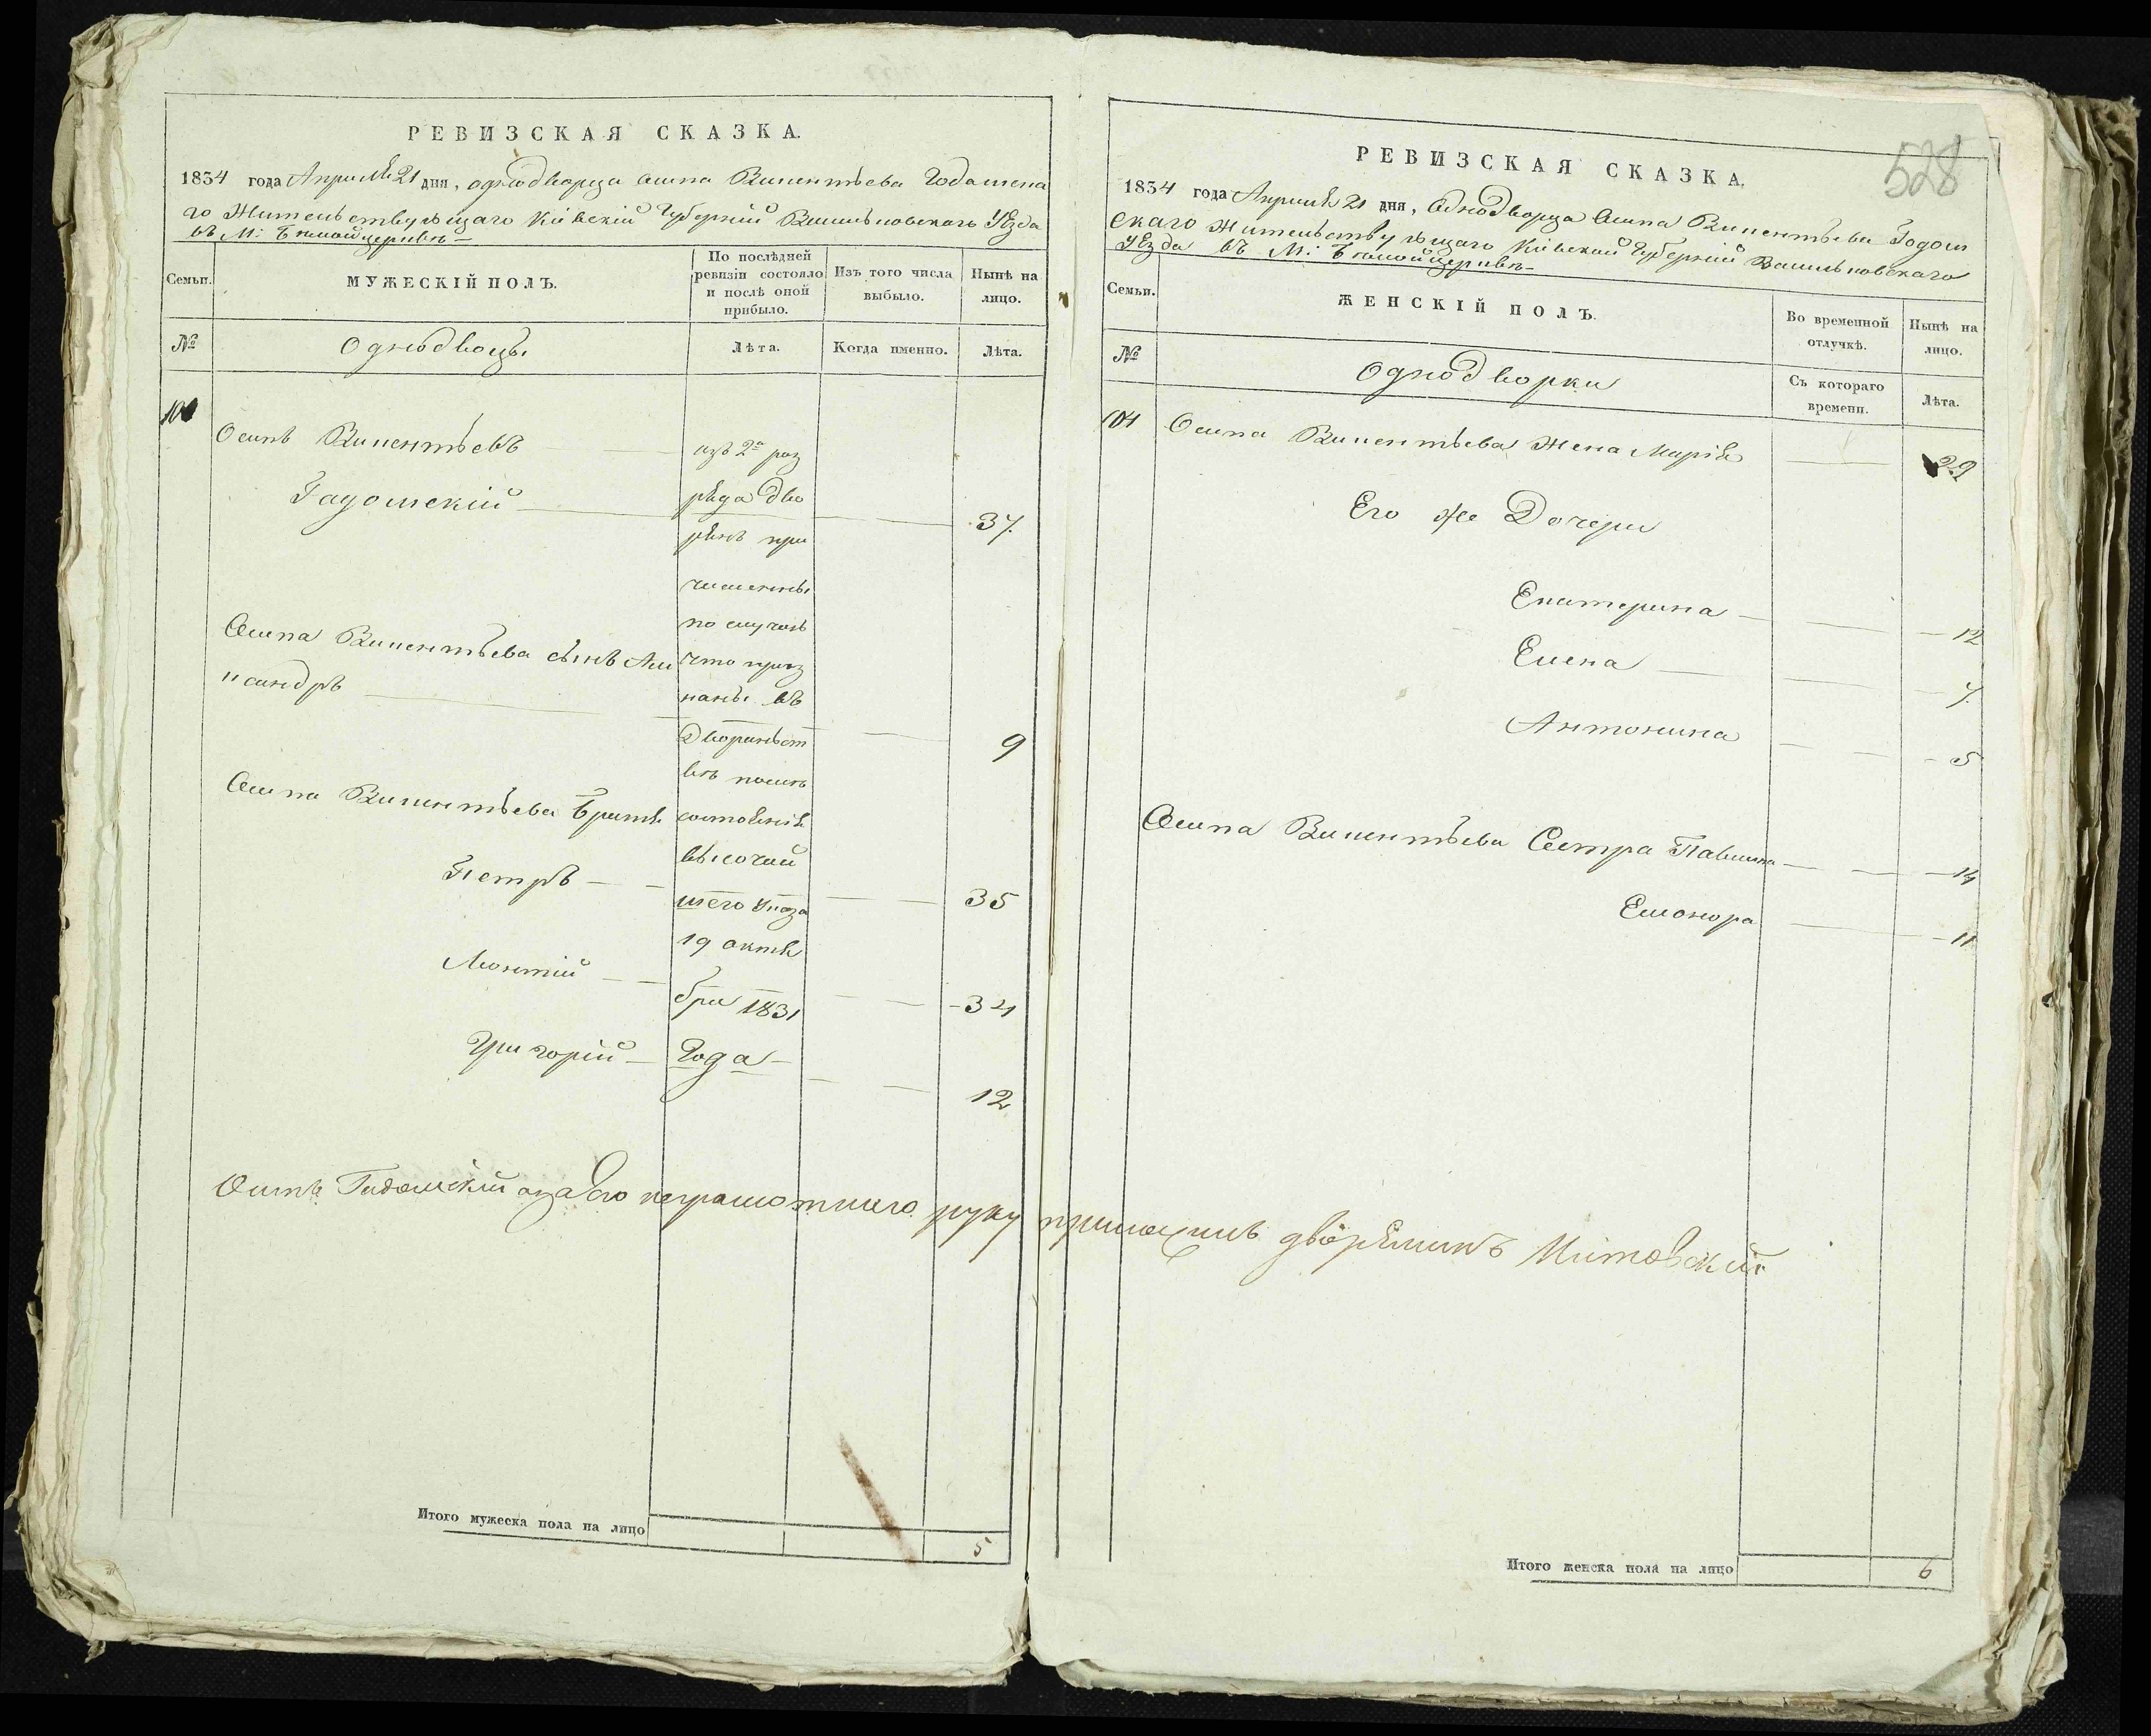 РЕВИЗСКАЯ СКАЗКА.
1834 года Апреля 21 дня, однодворца Осипа Викентьева Годомска
го Жительствующаго Кіевскій Губерній Васильковскаго Уѣзда
въ М: Бѣлойцерквѣ
Семьи.
МУЖЕСКІЙ ПОЛЪ.
По послѣдней
ревизіи состояло
и послѣ оной
прибыло.
Изъ того числа
выбыло.
Нынѣ на
лицо.
№
Однодвоцы
Лѣта.
Когда именно.
Лѣта.
Осипъ Викентьевъ
Гадомскій
37.
изъ 2го раз
ряда дво
рянъ при
численны
по случаю
что приз
наны въ
Дворянст
вѣ после
состоянія
высочай
шего Указа
19 октя
бря 1831
Года
Осипа Викентьева сынъ Але
ксандръ
9
Осипа Викентьева Братья
Петръ
35
Леонтій
34
Григорій
12
Осипъ Гадомскій а за его неграмотнаго руку приложилъ дворянинъ
Итого мужеска пола на лицо
5
528
РЕВИЗСКАЯ СКАЗКА.
1834 года Апреля 21 дня, Однодворца Осипа Викентьева Годом
скаго жительствующаго Кіевской Губерній Васильковскаго
Уѣзда въ М: Бѣлойцерквѣ
Семьи.
ЖЕНСКІЙ ПОЛЪ.
Во временной
отлучкѣ.
Нынѣ на
лицо.
№
Однодворки
Съ котораго
времени.
Лѣта.
104
Осипа Викентьева Жена Марія
29
Его же Дочери
Екатерина
12
Елена
7.
Антонина
5
Осипа Викентьева Сестра Павлина
14
Елонора
11
Итого женска пола на лицо
6